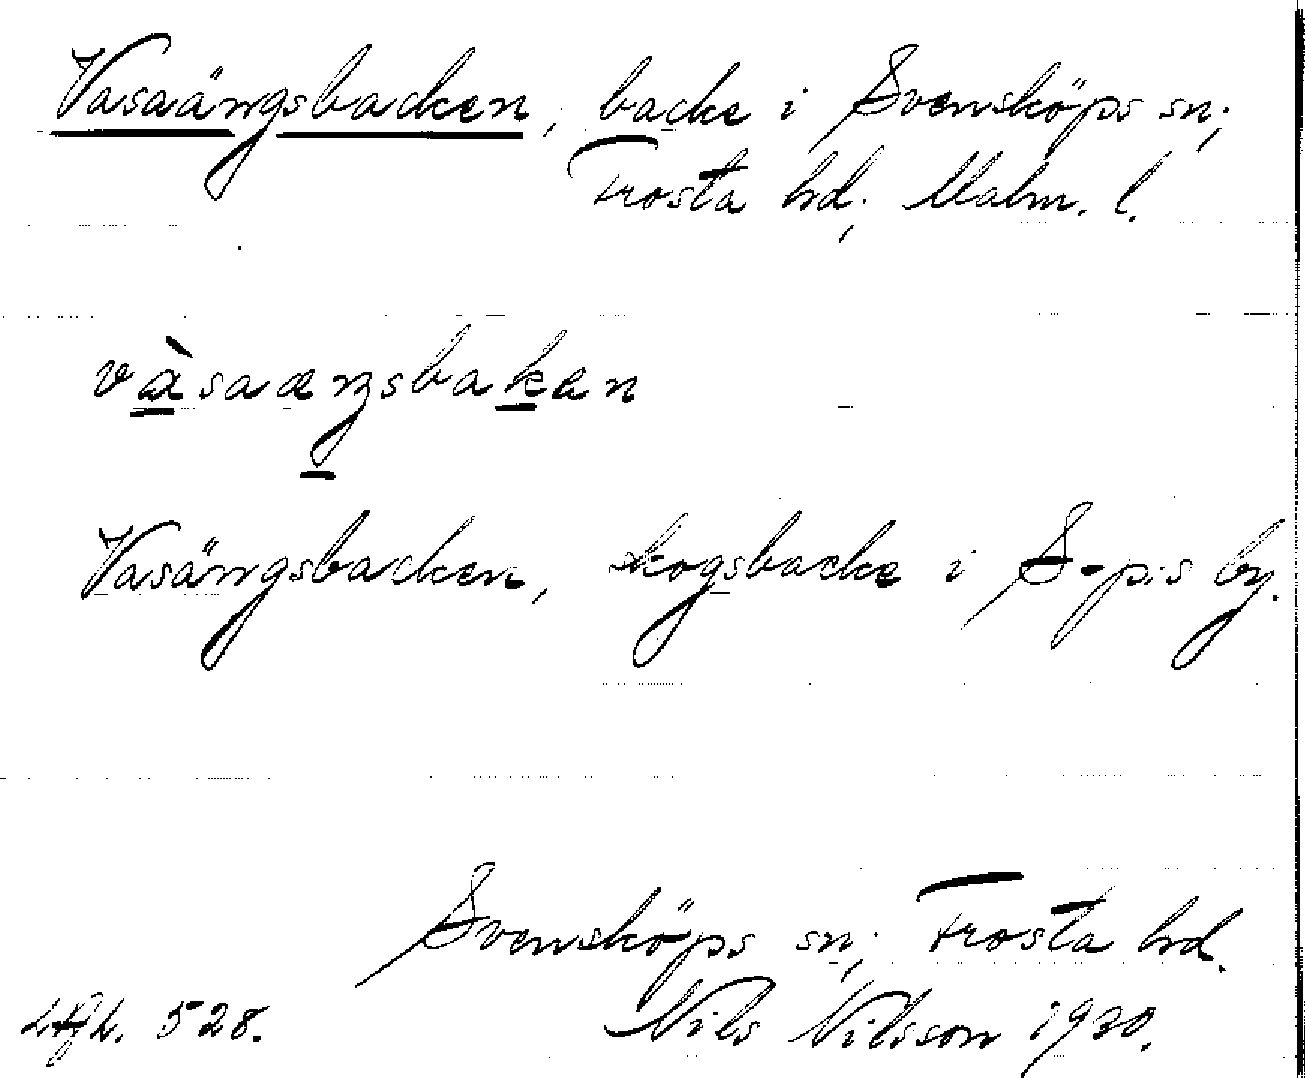 Vasaängsbacken, backe i Svensköps sn;
Frosta hd; Malm. l.
vàsaæŋsbakan
Vasängsbacken, skogsbacke i S-p:s by.
Svensköps sn; Frosta hd.
528. Nils Nilsson 1920.